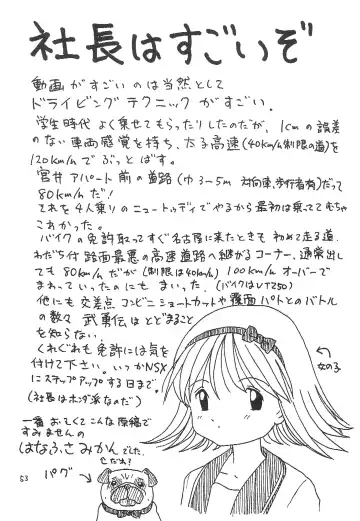 社長はすごいぞ
動画がすごいのは当然として
ドライビングテクニックがすごい.
学生時代よく乗せてもらったりしたのだが、1cmの誤差
のない車両感覚を持ち、
高速(40km/h制限の道)を
120km/hでぶっとばす。
宮井アパート前の道路(巾3~5m 対向車,歩行者有)だって
80km/hだ!
それを4人乗りのニュートゥディでやるから最初は乗っててもちゃ
こわかった。
バイクの免許取ってすぐ名古屋に来たときも初めて走る道.
わだち付路面最悪の高速道路の継がるコーナー、通常出し
ても80km/hだが(制限は40km/h)100km/hオーバーで
まわっていったのにもまいった.(バイクはVT250)
他にも交差点コンビニショートカットや覆面パトとのバトル
の数々武勇伝はとどまること
を知らない.
くれぐれも免許には気を
付けて下さい。いつかNSX
にステップアップする日まで
(社長はホンダ派なのだ)
一番おそくてこんな原稿で
すみませんの
はなふさみかんでした.
だれ?
パグ
女の子
53